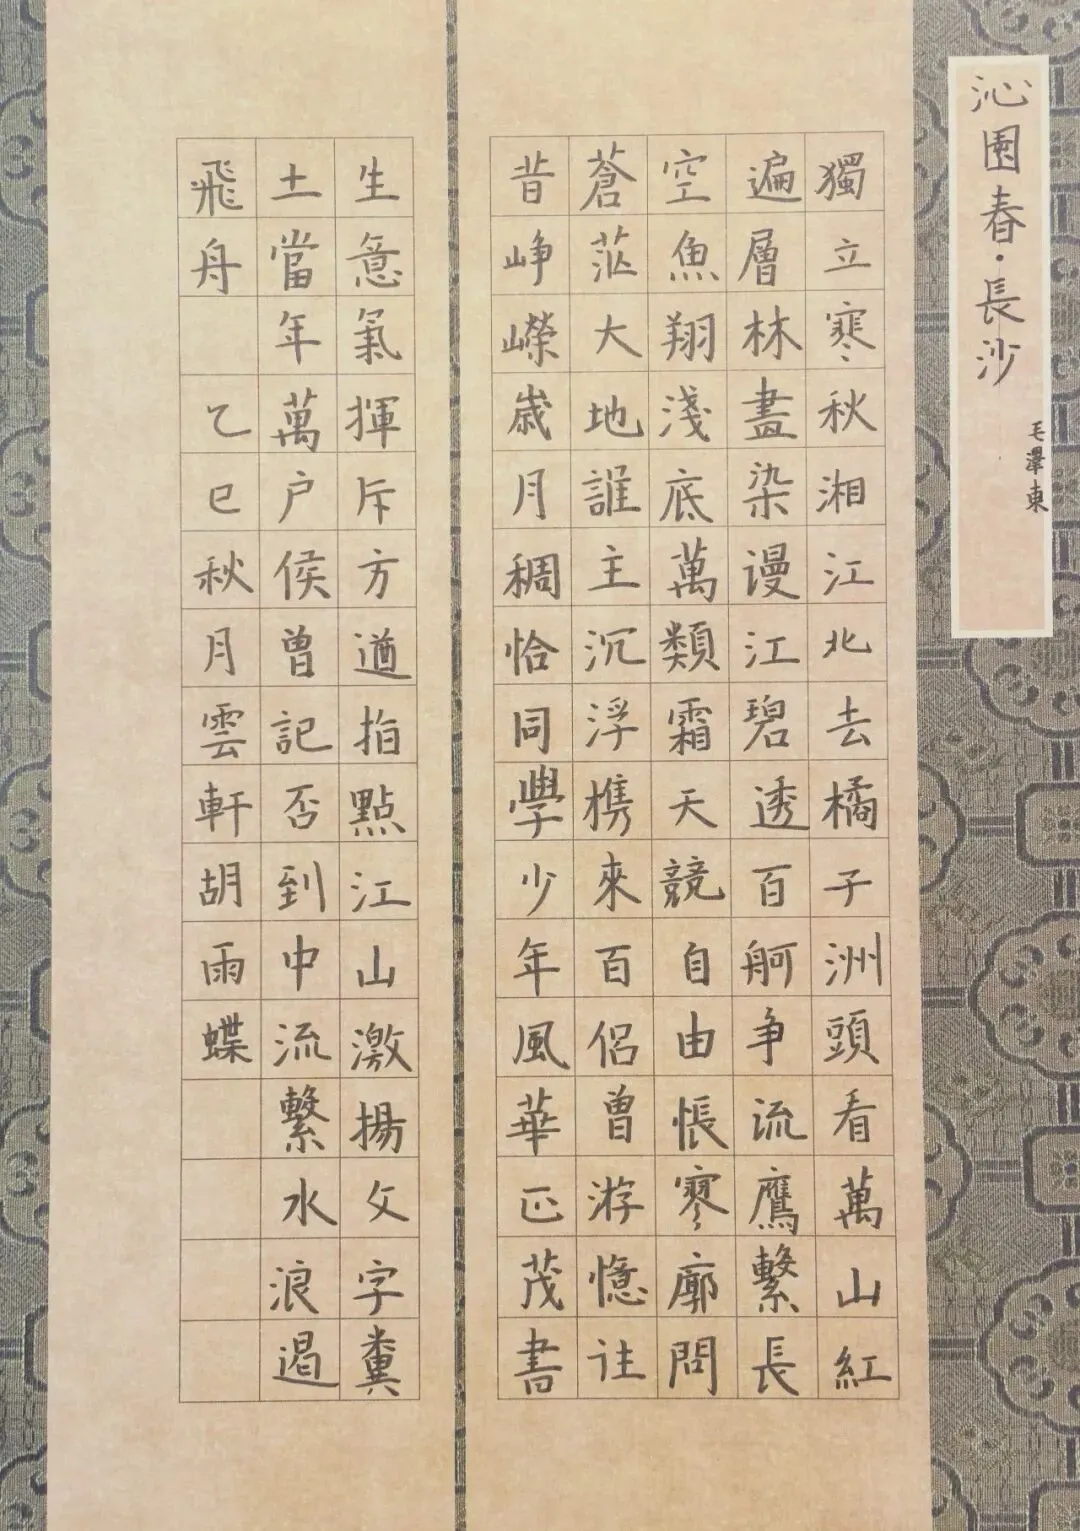 沁園春·長沙
毛澤東
獨立寒秋湘江北去橘子洲頭看萬山紅
遍層林盡染谩江碧透百舸争流鷹繫長
空魚翔淺底萬類霜天競自由悵寥廓問
蒼茫大地誰主沉浮携來百侶曾游憶往
昔峥嶸歲月稠恰同學少年風華正茂書
生意氣揮斥方遒指點江山激揚文字糞
土當年萬户侯曾記否到中流繫水浪遏
飛舟 乙巳秋月雲軒胡雨蝶